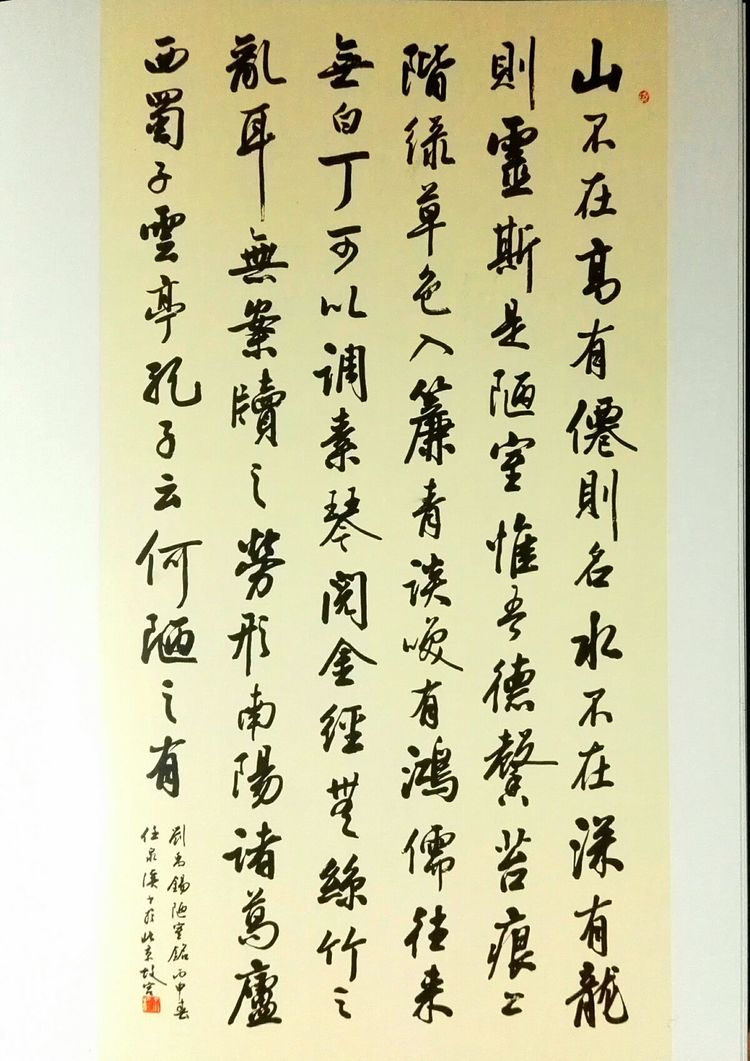 山不在高有僊則名水不在深有龍
則靈斯是陋室惟吾德馨苔痕上
階緑草色入簾青談唉有鴻儒往来
無白丁可以调素琴阅金經無絲竹之
亂耳無案牘之勞形南陽諸葛廬
西蜀子雲亭孔子云何陋之有
劉禹錫陋室銘丙申春
任泉溪於北京故宫